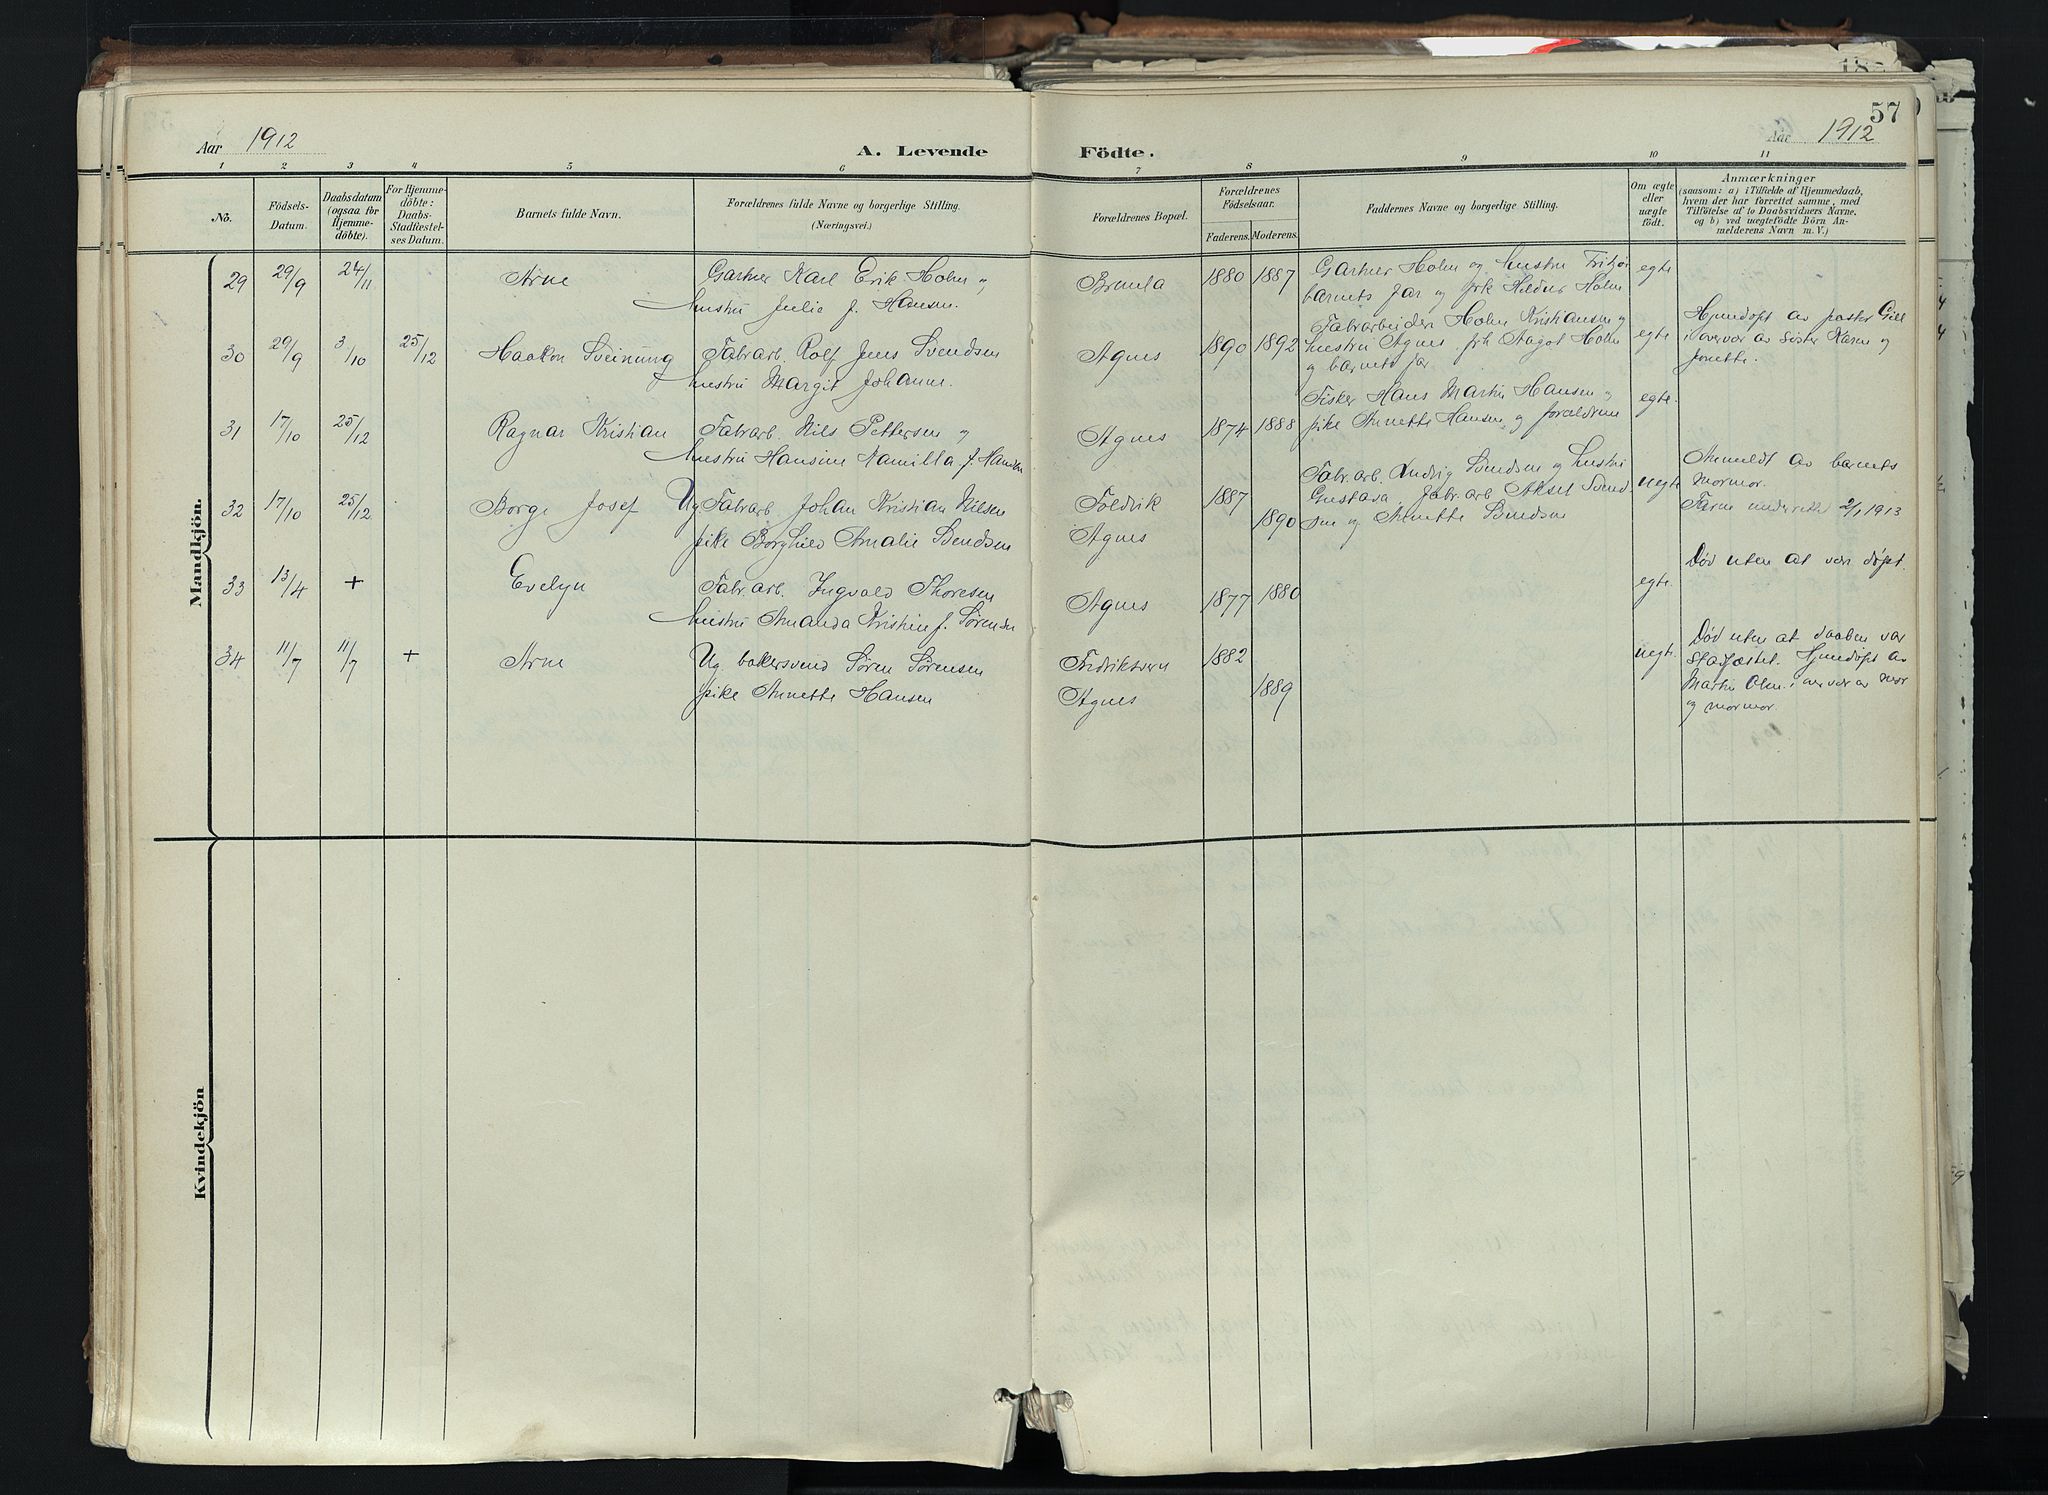 57
Aar 1912
A. Levende Födte.
Aar 1912
1 2 3 4 5 6 7 8 9 10 11
No.
Födsels-
Datum.
Daabsdatum
(ogsaa for
Hjemme-
döbte).
For Hjemme-
döbte:
Daabs-
Stadfæstel-
ses Datum.
Barnets fulde Navn.
Forældrenes fulde Navne og borgerlige Stilling.
(Næringsvei.)
Forældrenes Bopæl.
Forældrenes
Födselsaar.
Faderens. Moderens.
Faddernes Navne og borgerlige Stilling.
Om ægte
eller
uægte
födt.
Anmærkninger
(saasom: a) i Tilfælde af Hjemmedaab,
hvem der har forrettet samme, med
Tilföielse af to Daabsvidners Navne.
og b) ved uægtefödte Börn An-
melderens Navn m. V.)
Mandkjön.
29 29/9 24/11 Arne
Gartner Karl Erik Holm og
hustru Julie f. Hansen.
Brunla 1880 1887
Gartner Holm og hustru
barnets far og frk Holm
egte
30 29/9 3/10 25/12 Haakon Sveinung
Fabrarb. Rolf Jens Svendsen
hustru Margit Johanne.
Agnes 1890 1892
Fabrarbeider Holm Kristiansen og
hustru Agnes, frk Aagot Holm
og barnets far
egte
Hjemdøpt av pastor Gill
i overvær av Søster Karen og
Jonette.
31 17/10 25/12 Ragnar Kristian
Fabrarb. Nils Pettersen og
hustru Hansine Kamilla f. Hansen
Agnes 1874 1888
Fisker Hans Martin Hansen og
pike Annette Hansen, og forældrene
egte.
32 17/10 25/12 Borge Josef
Ug. Fabrarb Johan Kristian Nilsen
pike Borghild Amalie Svendsen
Foldvik 1887
Agnes 1890
Fabr.arb. Ludvig Svendsen og hustru
Gustava, fabr.arb Aksel Svend-
sen og Annette Svendsen
uegte
Anmeldt av barnets
mormor.
Faren underrettet 2/1 1913
33 13/4 + Evelyn
Fabr.arb. Ingvald Thoresen
hustru Amanda Kristine f. Sørensen
Agnes 1877 1880
egte.
Død uten at være døpt.
34 11/7 11/7 + Arne
Ug. bakersvend Søren Sørensen
pike Annette Hansen
Fredriksvern 1882
Agnes 1889
uegte.
Død uten at daaben var
stadfæstet. Hjemdøpt av
Martin Olsen i overvær av mor
og mormor.
Kvindekjön